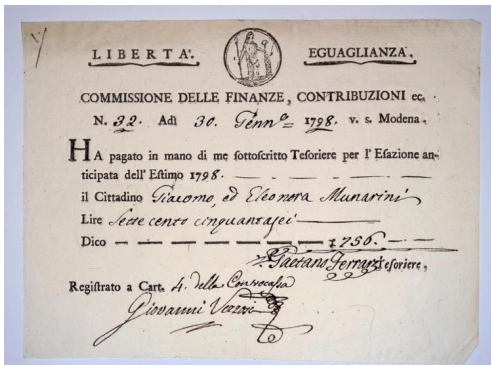 LIBERTA'. EGUAGLIANZA.
COMMISSIONE DELLE FINANZE, CONTRIBUZIONI ec.
N. 32. Adì 30. Genn.o 1798. v. s. Modena.
HA pagato in mano di me sottoscritto Tesoriere per l'Esazione an-
ticipata dell'Estimo 1798.
il Cittadino Giacomo, ed Eleonora Munarini
Lire Sette cento cinquantasei
Dico 756.
Gaetano Ferrari Tesoriere,
Registrato a Cart. 4. della Convocassa
Giovanni